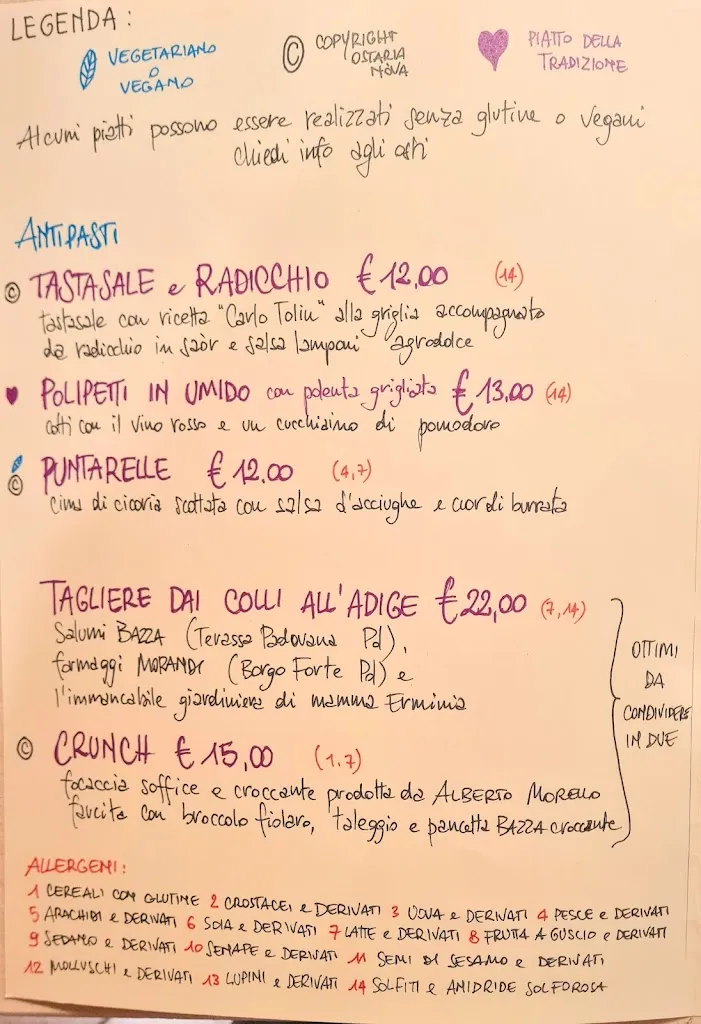 LEGENDA:
VEGETARIANO
O
VEGANO
© COPYRIGHT
OSTARIA
NOVA
PIATTO DELLA
TRADIZIONE
Alcuni piatti possono essere realizzati senza glutine o vegani
chiedi info agli osti
ANTIPASTI
© TASTASALE e RADICCHIO €12,00 (14)
tastasale con ricetta "Carlo Tolin" alla griglia accompagnato
da radicchio in saòr e salsa lamponi agrodolce
POLIPETTI IN UMIDO con polenta grigliata €13,00 (14)
cotti con il vino rosso e un cucchiaino di pomodoro
© PUNTARELLE €12.00 (4,7)
cima di cicoria scottata con salsa d'acciughe e cuor di burrata
TAGLIERE DAI COLLI ALL'ADIGE €22,00 (7,14)
Salumi BAZZA (Terassa Padovana Pd),
formaggi MORANDI (Borgo Forte Pd) e
l'immancabile giardiniera di mamma Erminia
© CRUNCH €15,00 (1,7)
focaccia soffice e croccante prodotta da ALBERTO MORELLO
farcita con broccolo fiolaro, taleggio e pancetta BAZZA croccante
OTTIMI
DA
CONDIVIDERE
IN DUE
ALLERGENI:
1 CEREALI CON GLUTINE 2 CROSTACEI e DERIVATI 3 UOVA e DERIVATI 4 PESCE e DERIVATI
5 ARACHIDI e DERIVATI 6 SOIA e DERIVATI 7 LATTE e DERIVATI 8 FRUTTA A GUSCIO e DERIVATI
9 SEDANO e DERIVATI 10 SENAPE e DERIVATI 11 SEMI DI SESAMO e DERIVATI
12 MOLLUSCHI e DERIVATI 13 LUPINI e DERIVATI 14 SOLFITI e ANIDRIDE SOLFOROSA